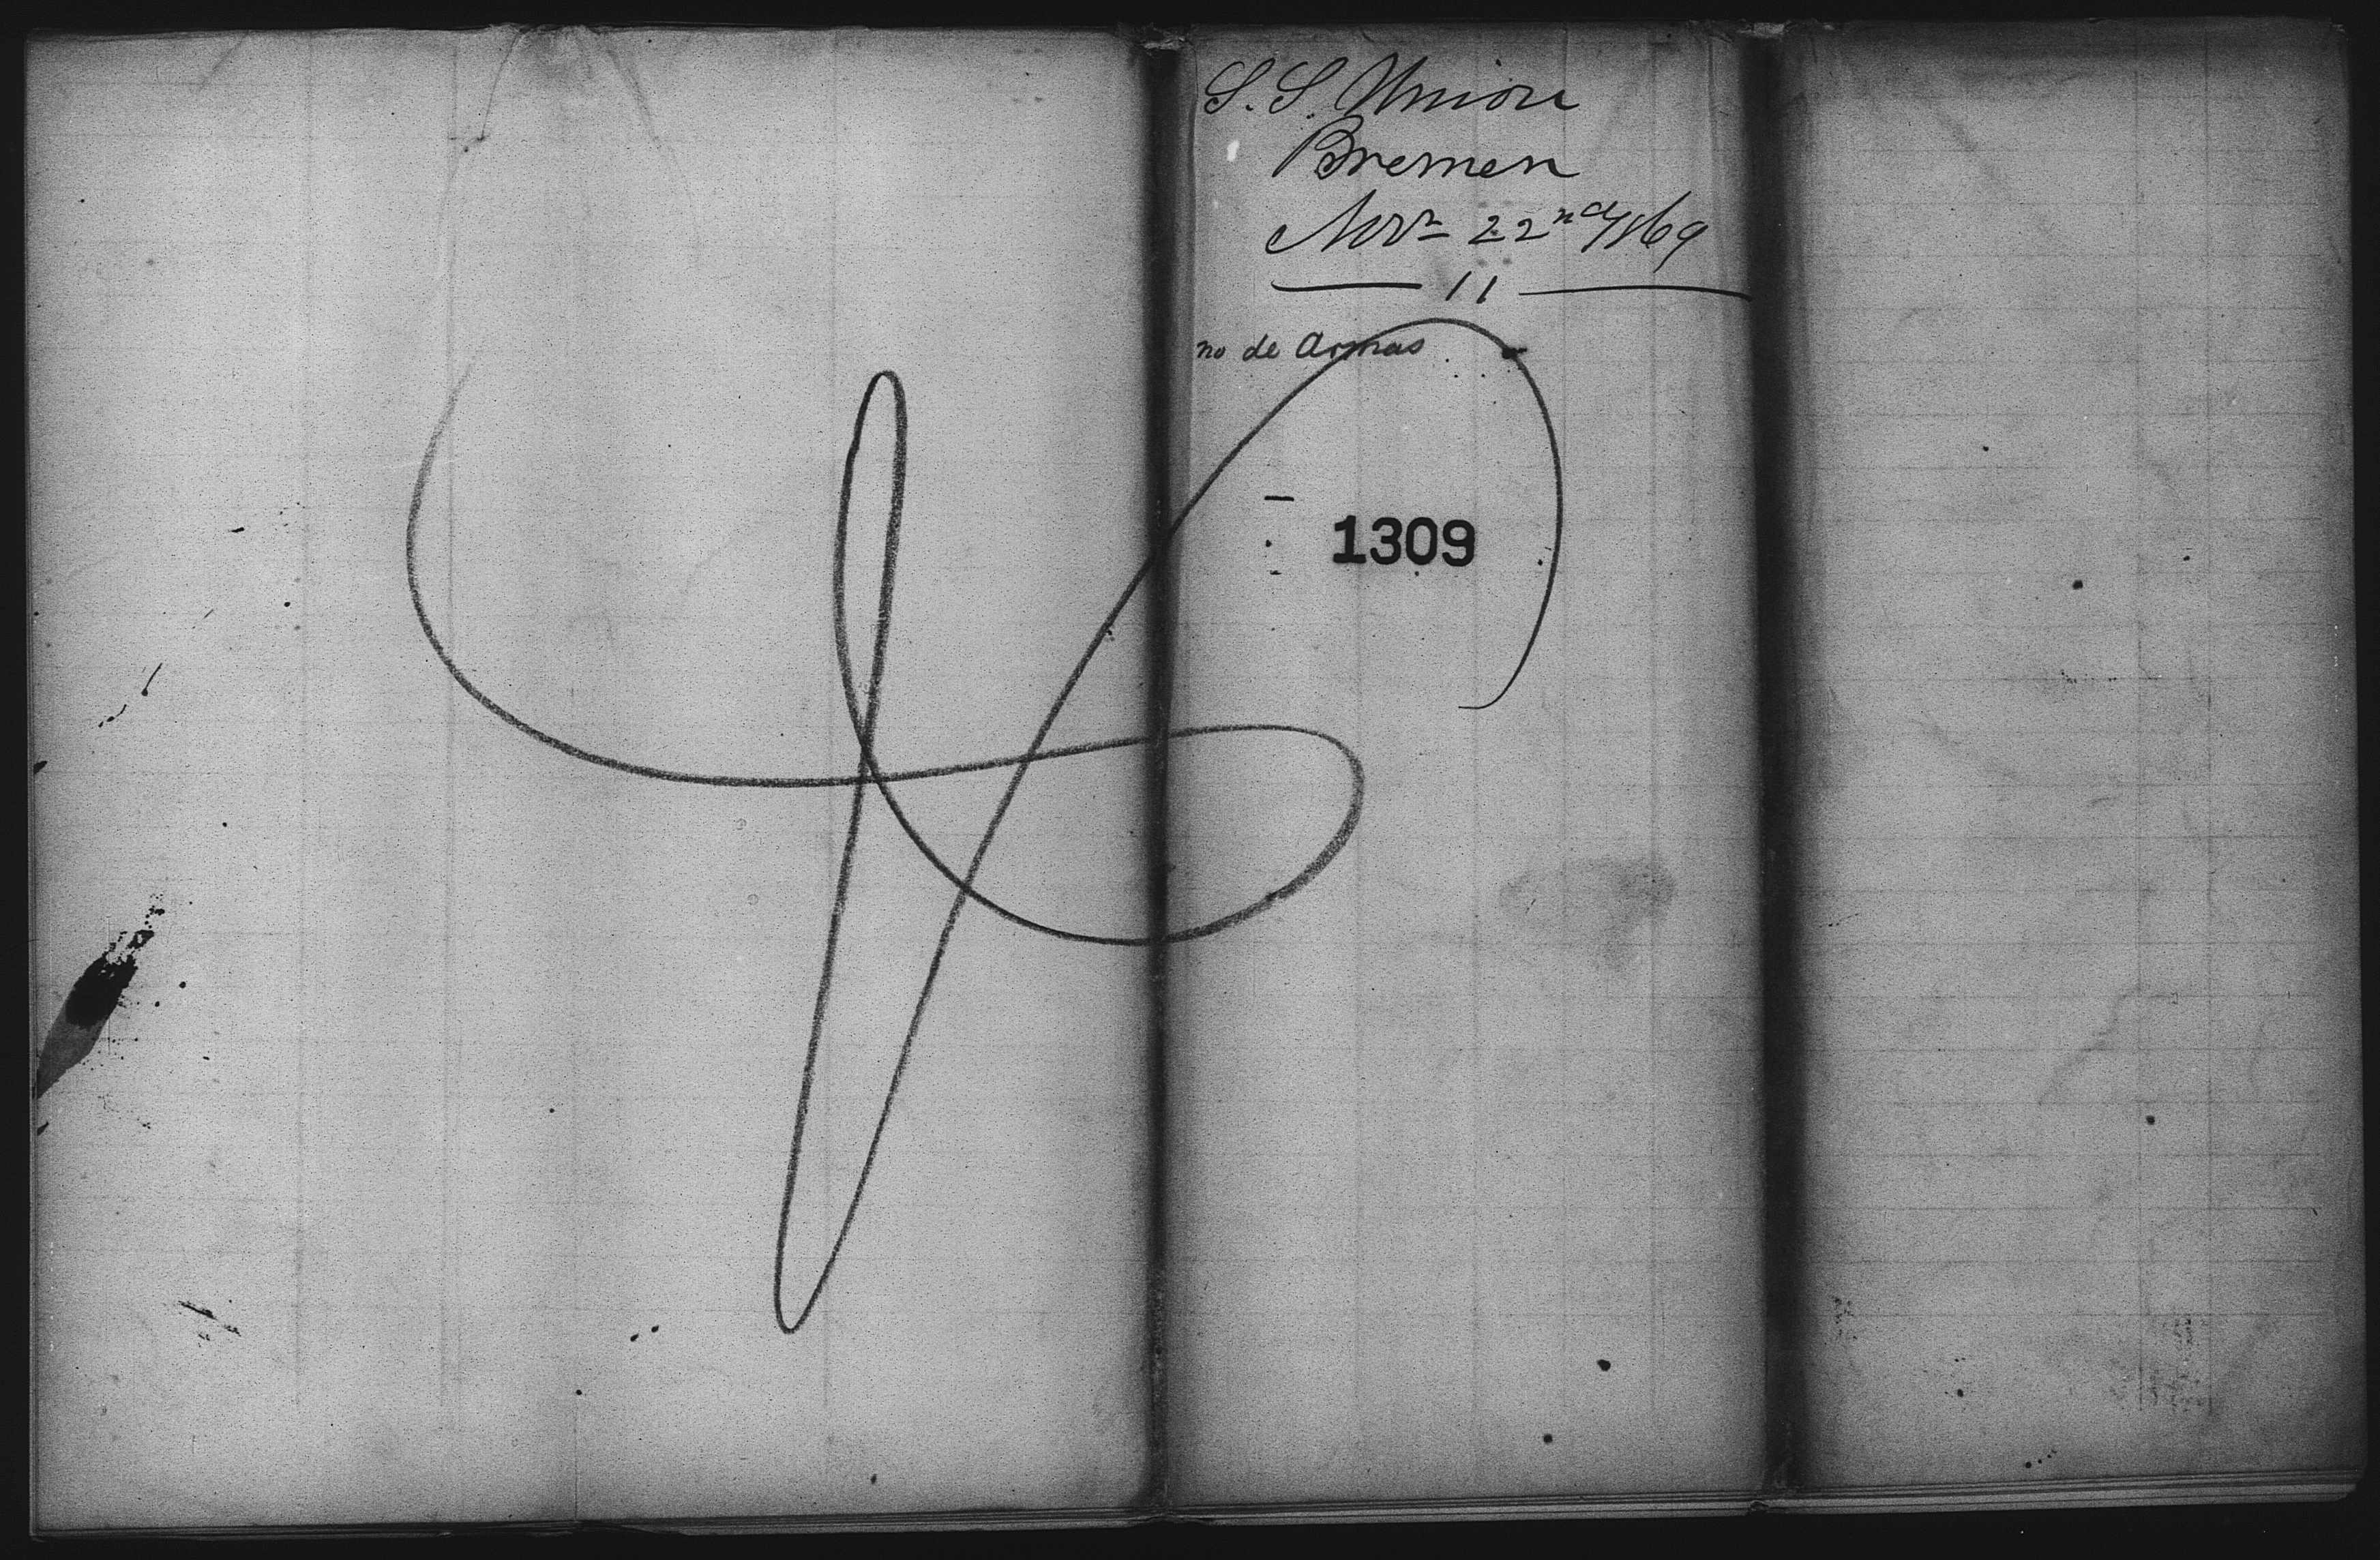 S. S. Union
Bremen
Novr 22nd/69
11
no de Armas
1309